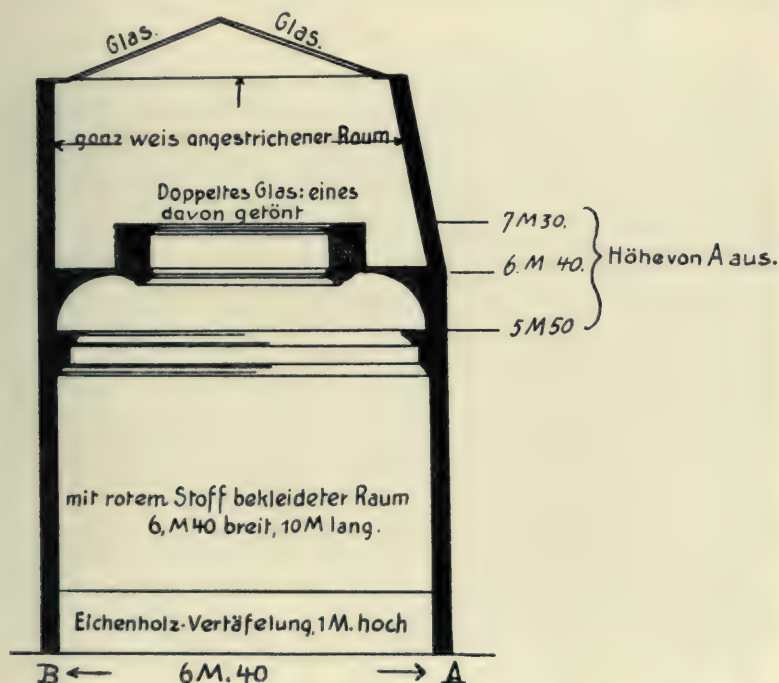 Glas. Glas.
ganz weis angestrichener Raum
Doppeltes Glas: eines
davon getönt
7M30.
6.M 40.
Höhe von A aus.
5M50
mit rotem Stoff bekleideter Raum
6,M40 breit, 10M lang.
Eichenholz-Vertäfelung, 1M. hoch
B 6M.40 A